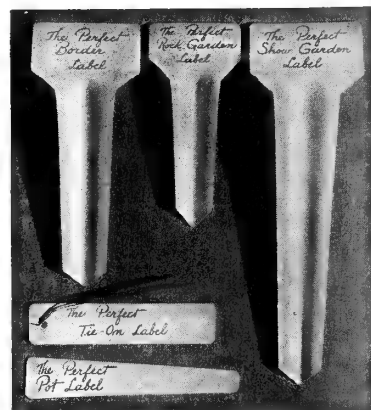 The Perfect
Border
Label
The Perfect
Rock-Garden
Label
The Perfect
Show Garden
Label
The Perfect
Tie-On Label
The Perfect
Pot Label